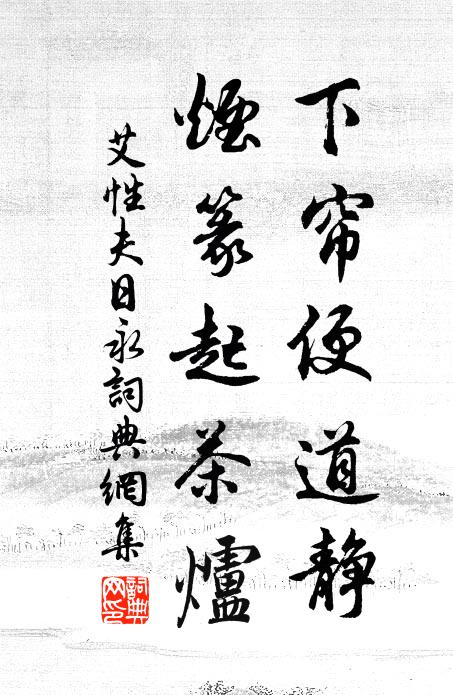 下帘便道静
煙篆起茶爐
艾性夫日永詞典網集
詞典網印